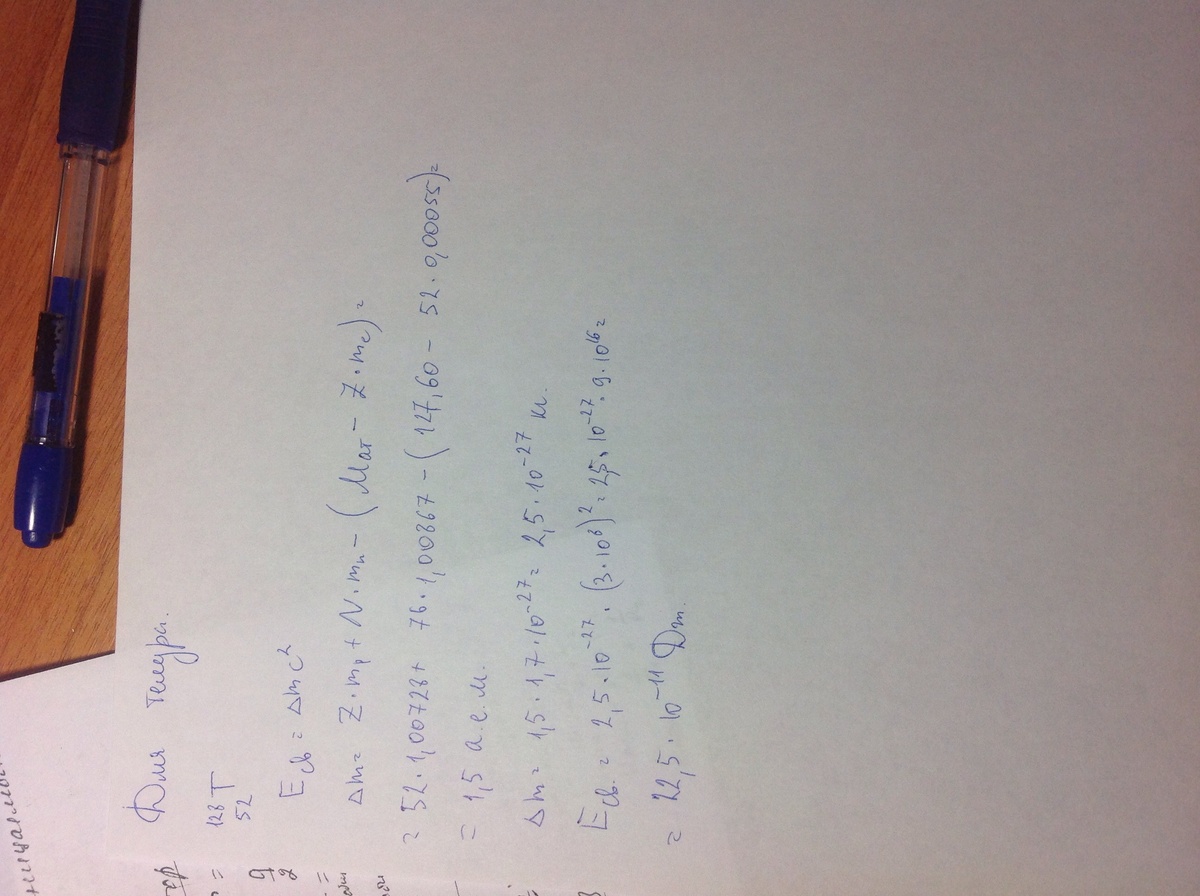 Для телура.
128
52 T
Eсв = Δmc²
Δm = Z·mp + N·mn – (Mат – Z·me) =
= 52·1,00728 + 76·1,00867 – (127,60 – 52·0,00055) =
= 1,5 а.е.м.
Δm = 1,5·1,7·10⁻²⁷ = 2,5·10⁻²⁷ кг.
Eсв. = 2,5·10⁻²⁷·(3·10⁸)² = 2,5·10⁻²⁷·9·10¹⁶ =
= 22,5·10⁻¹¹ Дж.